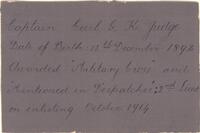 Captain Cecil G. K. Judge
Date of Birth: 12th December 1892
Awarded "Military Cross" and
"Mentioned in Despatches". 2nd Lieut
on enlisting October 1914